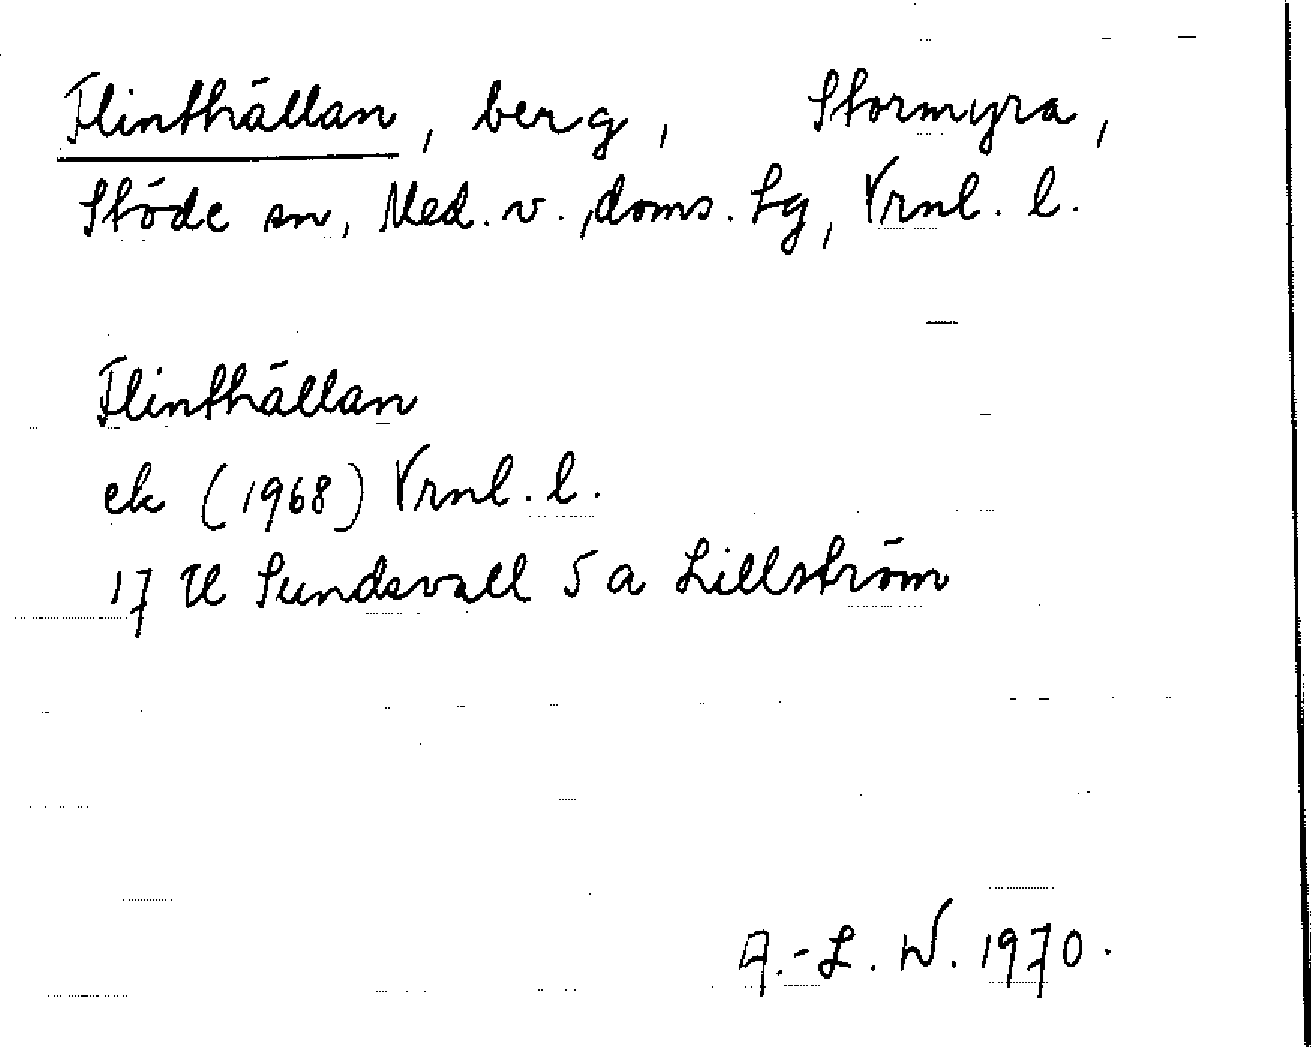 Flinthällan, berg, Stormyra,
Stöde sn, Med. v., doms. Lg, Vrnl. l.
Flinthällan
ek (1968) Vrnl. l.
17 H Sundsvall 5 a Lillström
A.-L. W. 1970.